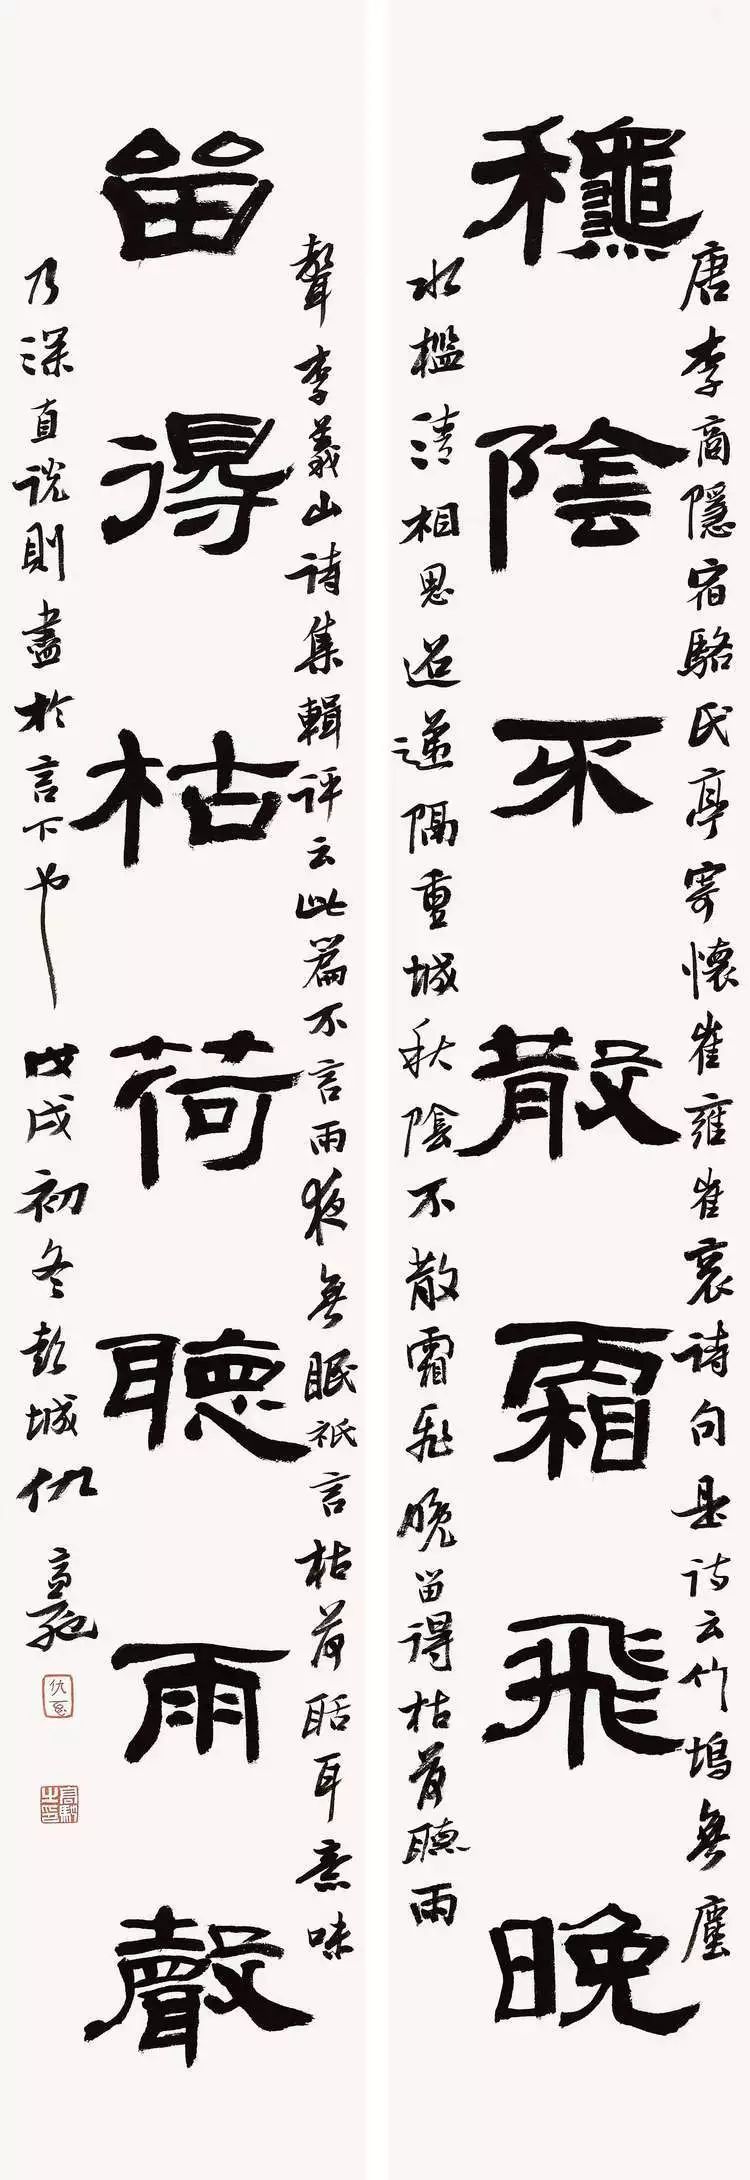 唐李商隱宿駱氏亭寄懷崔雍崔袞詩句是詩云竹塢無塵
龝陰不散霜飛晚
水檻清相思迢遞隔重城秋陰不散霜飛晚留得枯荷聽雨
聲李義山詩集輯評云此篇不言雨夜無眠祇言枯荷聒耳意味
留得枯荷聽雨聲
乃深直說則盡於言下也 戊戌初冬彭城仇高馳
高馳之印